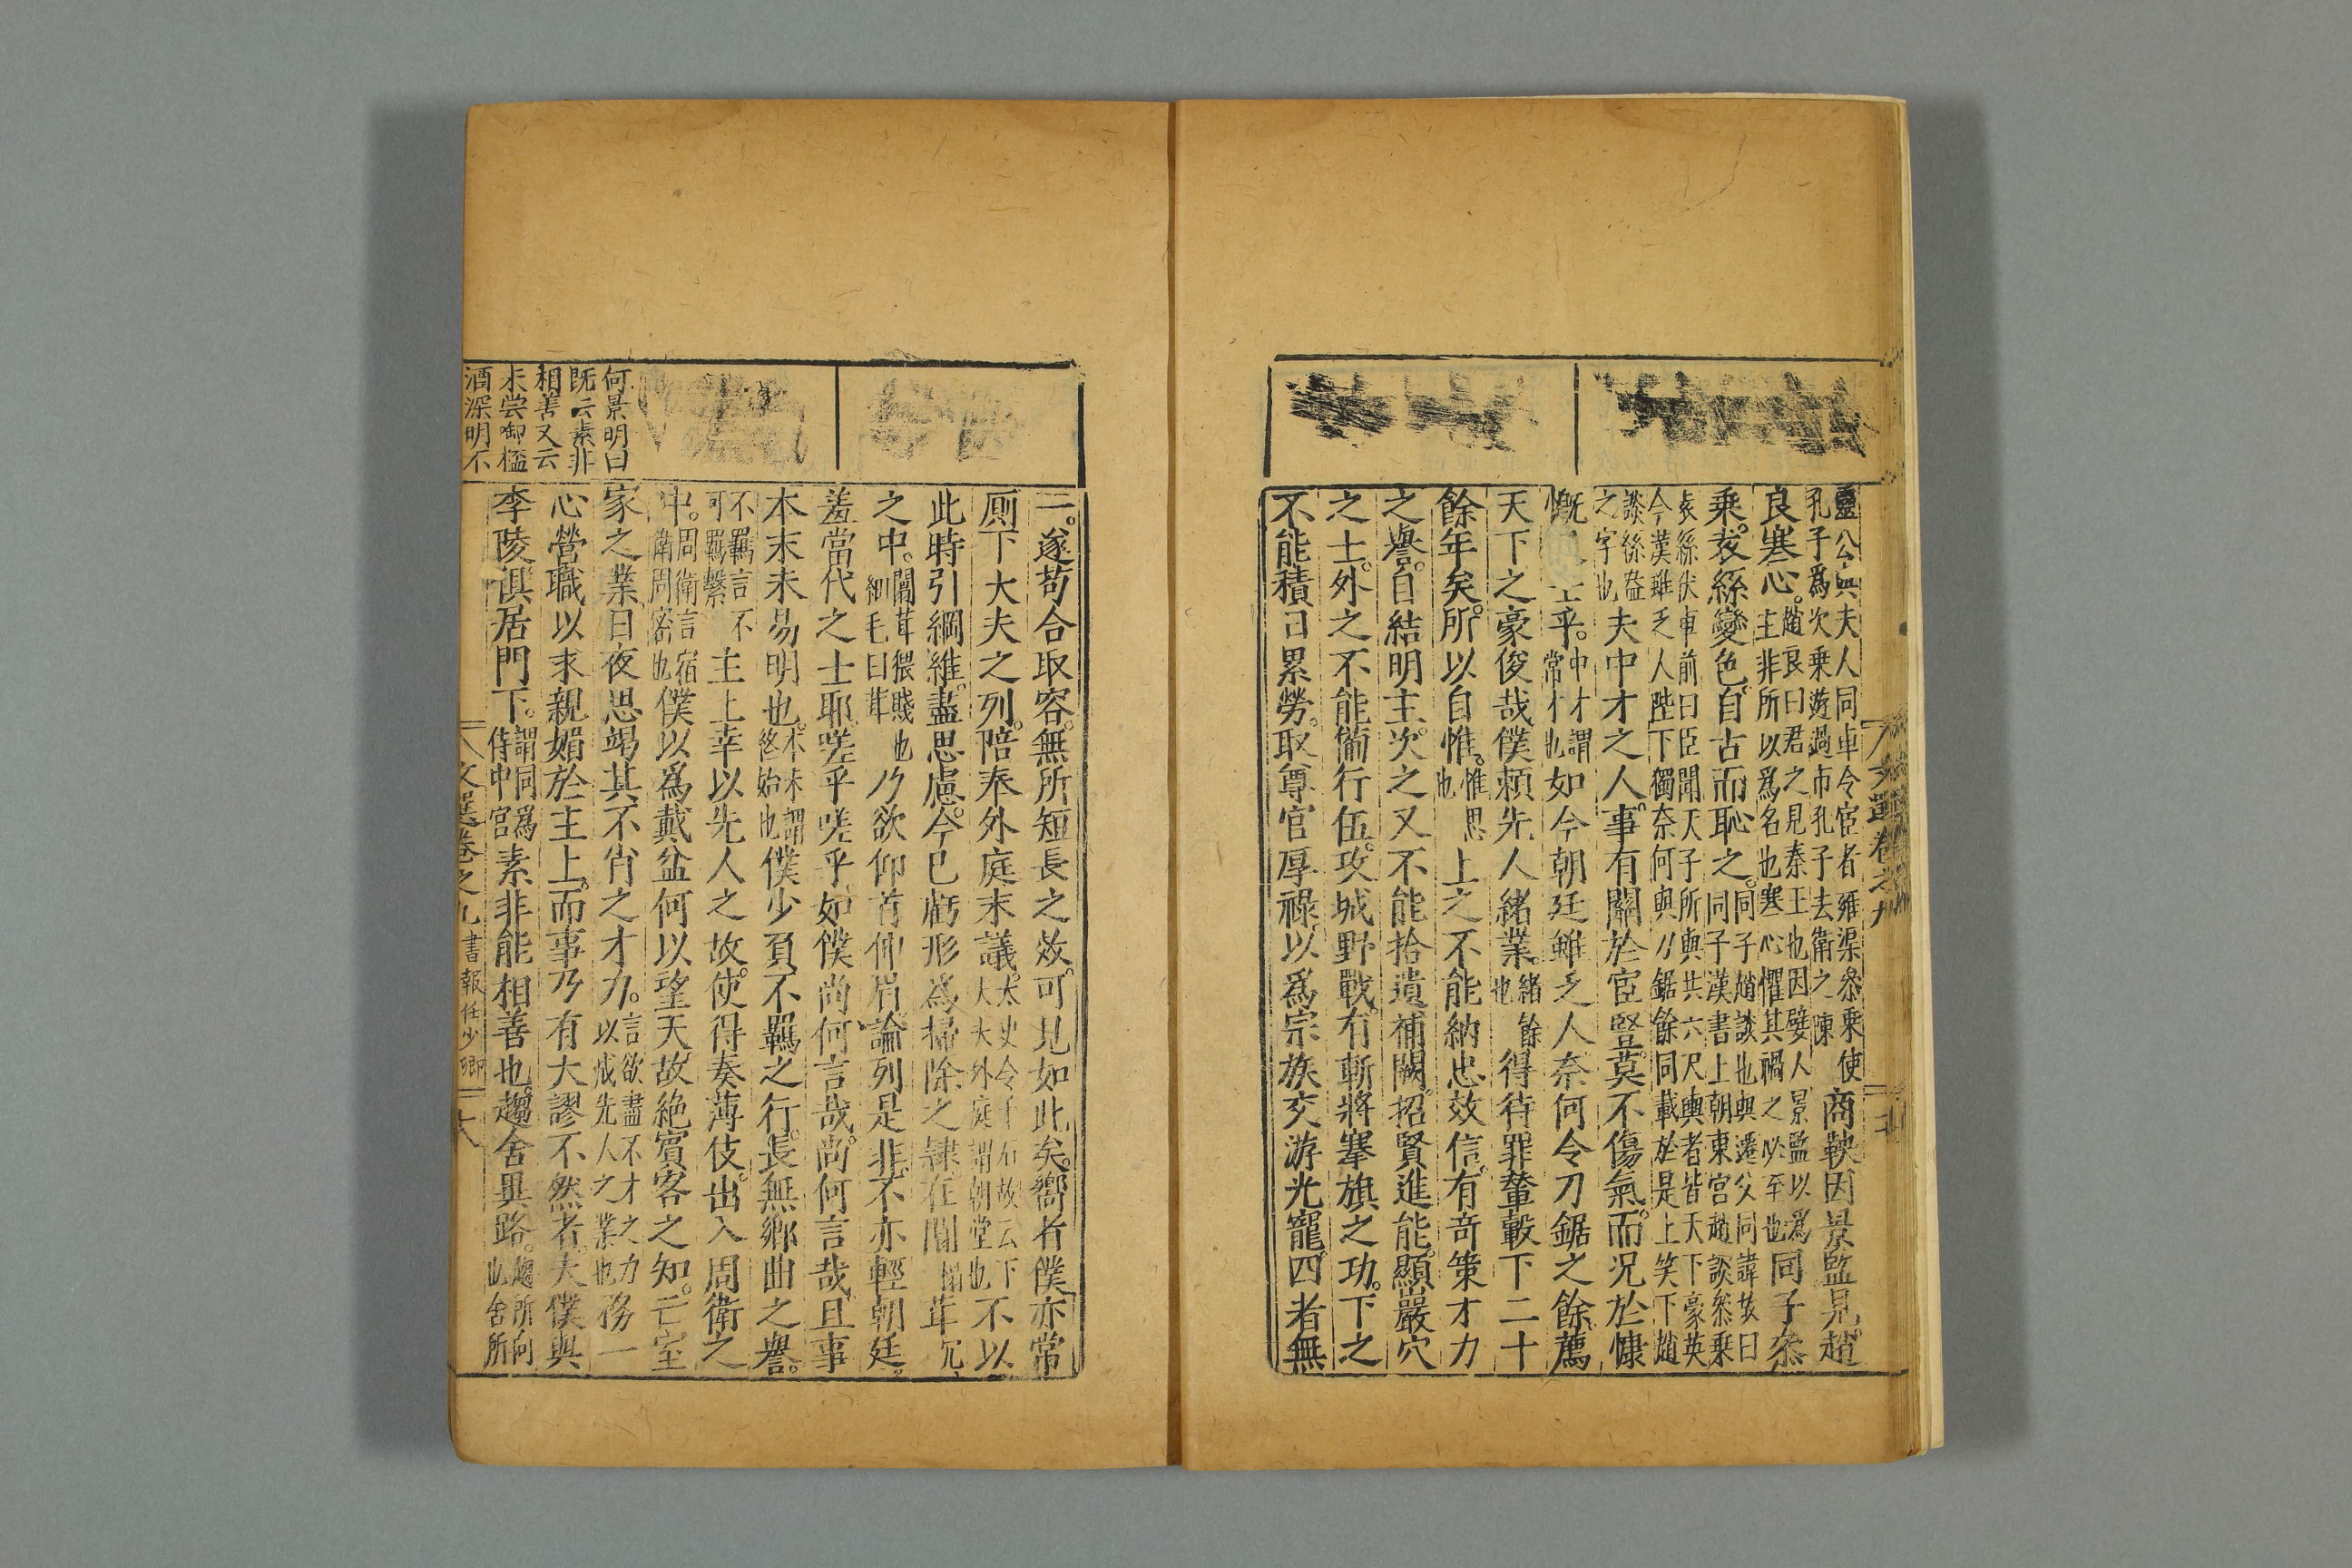 靈公與夫人同車令宦者雍渠叅乗使
孔子爲次乗遊過市孔子去衛之陳
商鞅因景監見趙
良寒心。
趙良曰君之見秦王也因嬖人景監以爲
主非所以爲名也寒心懼其禍之必至也
同子叅
乗。袁絲變色。自古而恥之。
同子趙談也與遷父同諱故曰
同子漢書上朝東宮趙談叅乗
袁絲伏車前曰臣聞天子所與共六尺輿者皆天下豪英
今漢雖乏人陛下獨奈何與刀鋸餘同載於是上笑下趙
談絲盎
之字也
夫中才之人。事有關於宦豎。莫不傷氣。而況於慷
慨之士乎。
中才謂
常才也
如今朝廷雖乏人奈何令刀鋸之餘薦
天下之豪俊哉僕頼先人緒業。
緒餘
也
得待罪輦轂下二十
餘年矣。所以自惟。
惟思
也
上之不能納忠效信。有竒策才力
之譽。自結明主。次之又不能拾遺補闕。招賢進能。顯巖穴
之士。外之不能備行伍。攻城野戰。有斬將搴旗之功。下之
不能積日累勞。取尊官厚祿以爲宗族交游光寵。四者無
文選卷之九
一。遂苟合取容。無所短長之效。可見如此矣。嚮者僕亦常
厠下大夫之列。陪奉外庭末議。
太史令千石故云下
大夫外庭謂朝堂也
不以
此時引綱維。盡思慮。今已虧形爲掃除之隸在闒茸
之中。
闒茸猥賤也
細毛曰茸
乃欲仰首伸眉論列是非。不亦輕朝廷。
羞當代之士耶。嗟乎嗟乎如僕尚何言哉。尚何言哉。且事
本末未易明也。
本末謂
終始也
僕少負不羈之行。長無鄉曲之譽。
不羈言不
可羈繫
主上幸以先人之故。使得奏薄伎。出入周衛之
中。
周衛言宿
衛周密也
僕以爲戴盆何以望天故絕賓客之知。亡室
家之業日夜思竭其不肖之才力。
言欲盡不才之力
以成先人之業也
務一
心營職以求親媚於主上。而事乃有大謬不然者。夫僕與
李陵俱居門下。
謂同爲
侍中宮
素非能相善也。趨舍異路。
趨所向
也舍所
何景明曰
既云素非
相善又云
未嘗啣盃
酒深明不
文選卷之九 書 報任少卿 十六